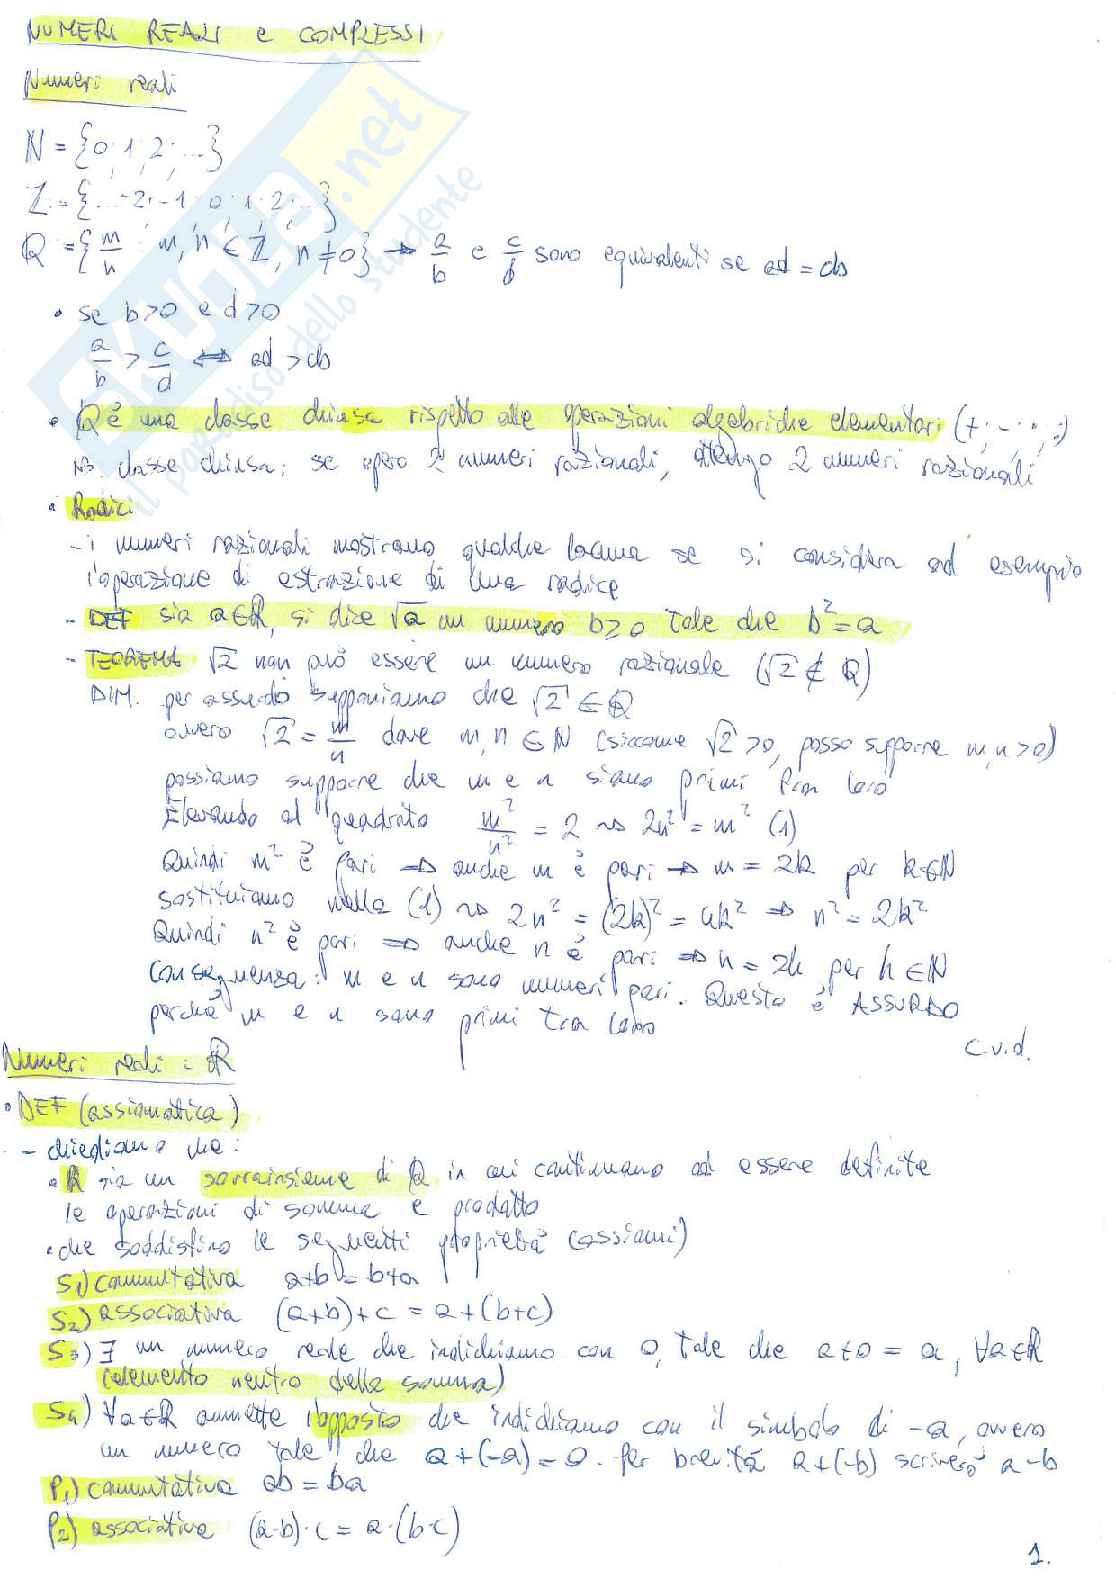 NUMERI REALI e COMPLESSI
Numeri reali
ℕ = {0, 1, 2, ...}
ℤ = {... -2, -1, 0, 1, 2, ...}
ℚ = {m/n : m, n ∈ ℤ, n ≠ 0} → a/b e c/d sono equivalenti se ad = cb
• se b>0 e d>0
a/b > c/d ⇔ ad > cb
• ℚ è una classe chiusa rispetto alle operazioni algebriche elementari (+, -, ·, :)
NB. classe chiusa: se opero 2 numeri razionali, ottengo 2 numeri razionali
• Radici
- i numeri razionali mostrano qualche lacuna se si considera ad esempio
l'operazione di estrazione di una radice
- DEF sia a∈ℝ, si dice √a un numero b≥0 tale che b²=a
- TEOREMA √2 non può essere un numero razionale (√2 ∉ ℚ)
DIM. per assurdo supponiamo che √2 ∈ ℚ
ovvero √2 = m/n dove m, n ∈ ℕ (siccome √2 >0, posso supporre m, n >0)
possiamo supporre che m e n siano primi fra loro
Elevando al quadrato m²/n² = 2 ⇝ 2n² = m² (1)
Quindi m² è pari ⇒ anche m è pari ⇒ m = 2k per k∈ℕ
sostituiamo nella (1) ⇝ 2n² = (2k)² = 4k² ⇒ n² = 2k²
Quindi n² è pari ⇒ anche n è pari ⇒ n = 2h per h ∈ ℕ
conseguenza: m e n sono numeri pari. Questo è ASSURDO
perché m e n sono primi tra loro
c.v.d.
Numeri reali : ℝ
• DEF (assiomatica)
- chiediamo che:
• ℝ sia un sovrainsieme di ℚ in cui continuano ad essere definite
le operazioni di somma e prodotto
• che soddisfino le seguenti proprietà (assiomi)
S₁) commutativa a+b = b+a
S₂) associativa (a+b)+c = a+(b+c)
S₃) ∃ un numero reale che indichiamo con 0, tale che a+0 = a, ∀a∈ℝ
(elemento neutro della somma)
S₄) ∀a∈ℝ ammette l'opposto che indichiamo con il simbolo di -a, ovvero
un numero tale che a+(-a) = 0. Per brevità a+(-b) scriverò a-b
P₁) commutativa ab = ba
P₂) associativa (a·b)·c = a·(b·c)
1.
SKUOLA.net
il paradiso dello studente